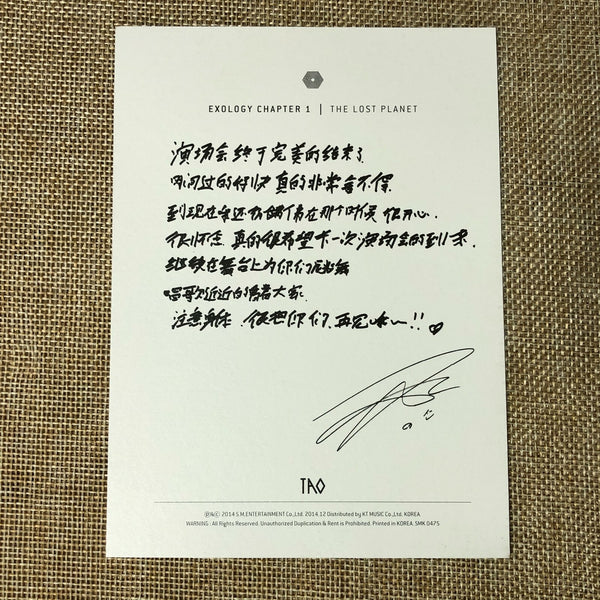 EXOLOGY CHAPTER 1 | THE LOST PLANET
演场会终于完美的结束了
时间过的好快 真的非常舍不得
到现在 在那个时候 很开心.
很怀念 真的很希望下一次演场会的到来.
继续在舞台上为你们跳舞
唱歌近近的看着大家.
注意身体. 很想你们. 再见 ~!! ♡
TAO
℗&© 2014 S.M.ENTERTAINMENT Co.,Ltd. 2014.12 Distributed by KT MUSIC Co.,Ltd. KOREA.
WARNING : All Rights Reserved. Unauthorized Duplication & Rent is Prohibited. Printed in KOREA. SMK 0475